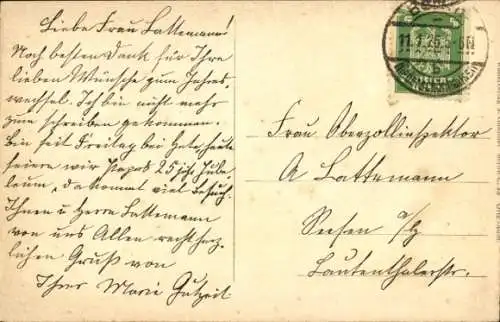 Liebe Frau Lattemann!
Noch besten Dank für Ihre
lieben Wünsche zum Jahres,
wechsel. Ich bin nicht mehr
zum schreiben gekommen.
Bin seit Freitag bei heute
feiern wir Papas 25 jähr. Jubi,
leum, da kommt viel Besuch.
Ihnen u Herrn Lattemann
von uns Allen recht herz,
lichen Gruß von
Ihrer Marie Gutzeit
11.1.25
Frau Oberzollinspektor
A Lattemann
Seesen a/H
Lautenthalerstr.